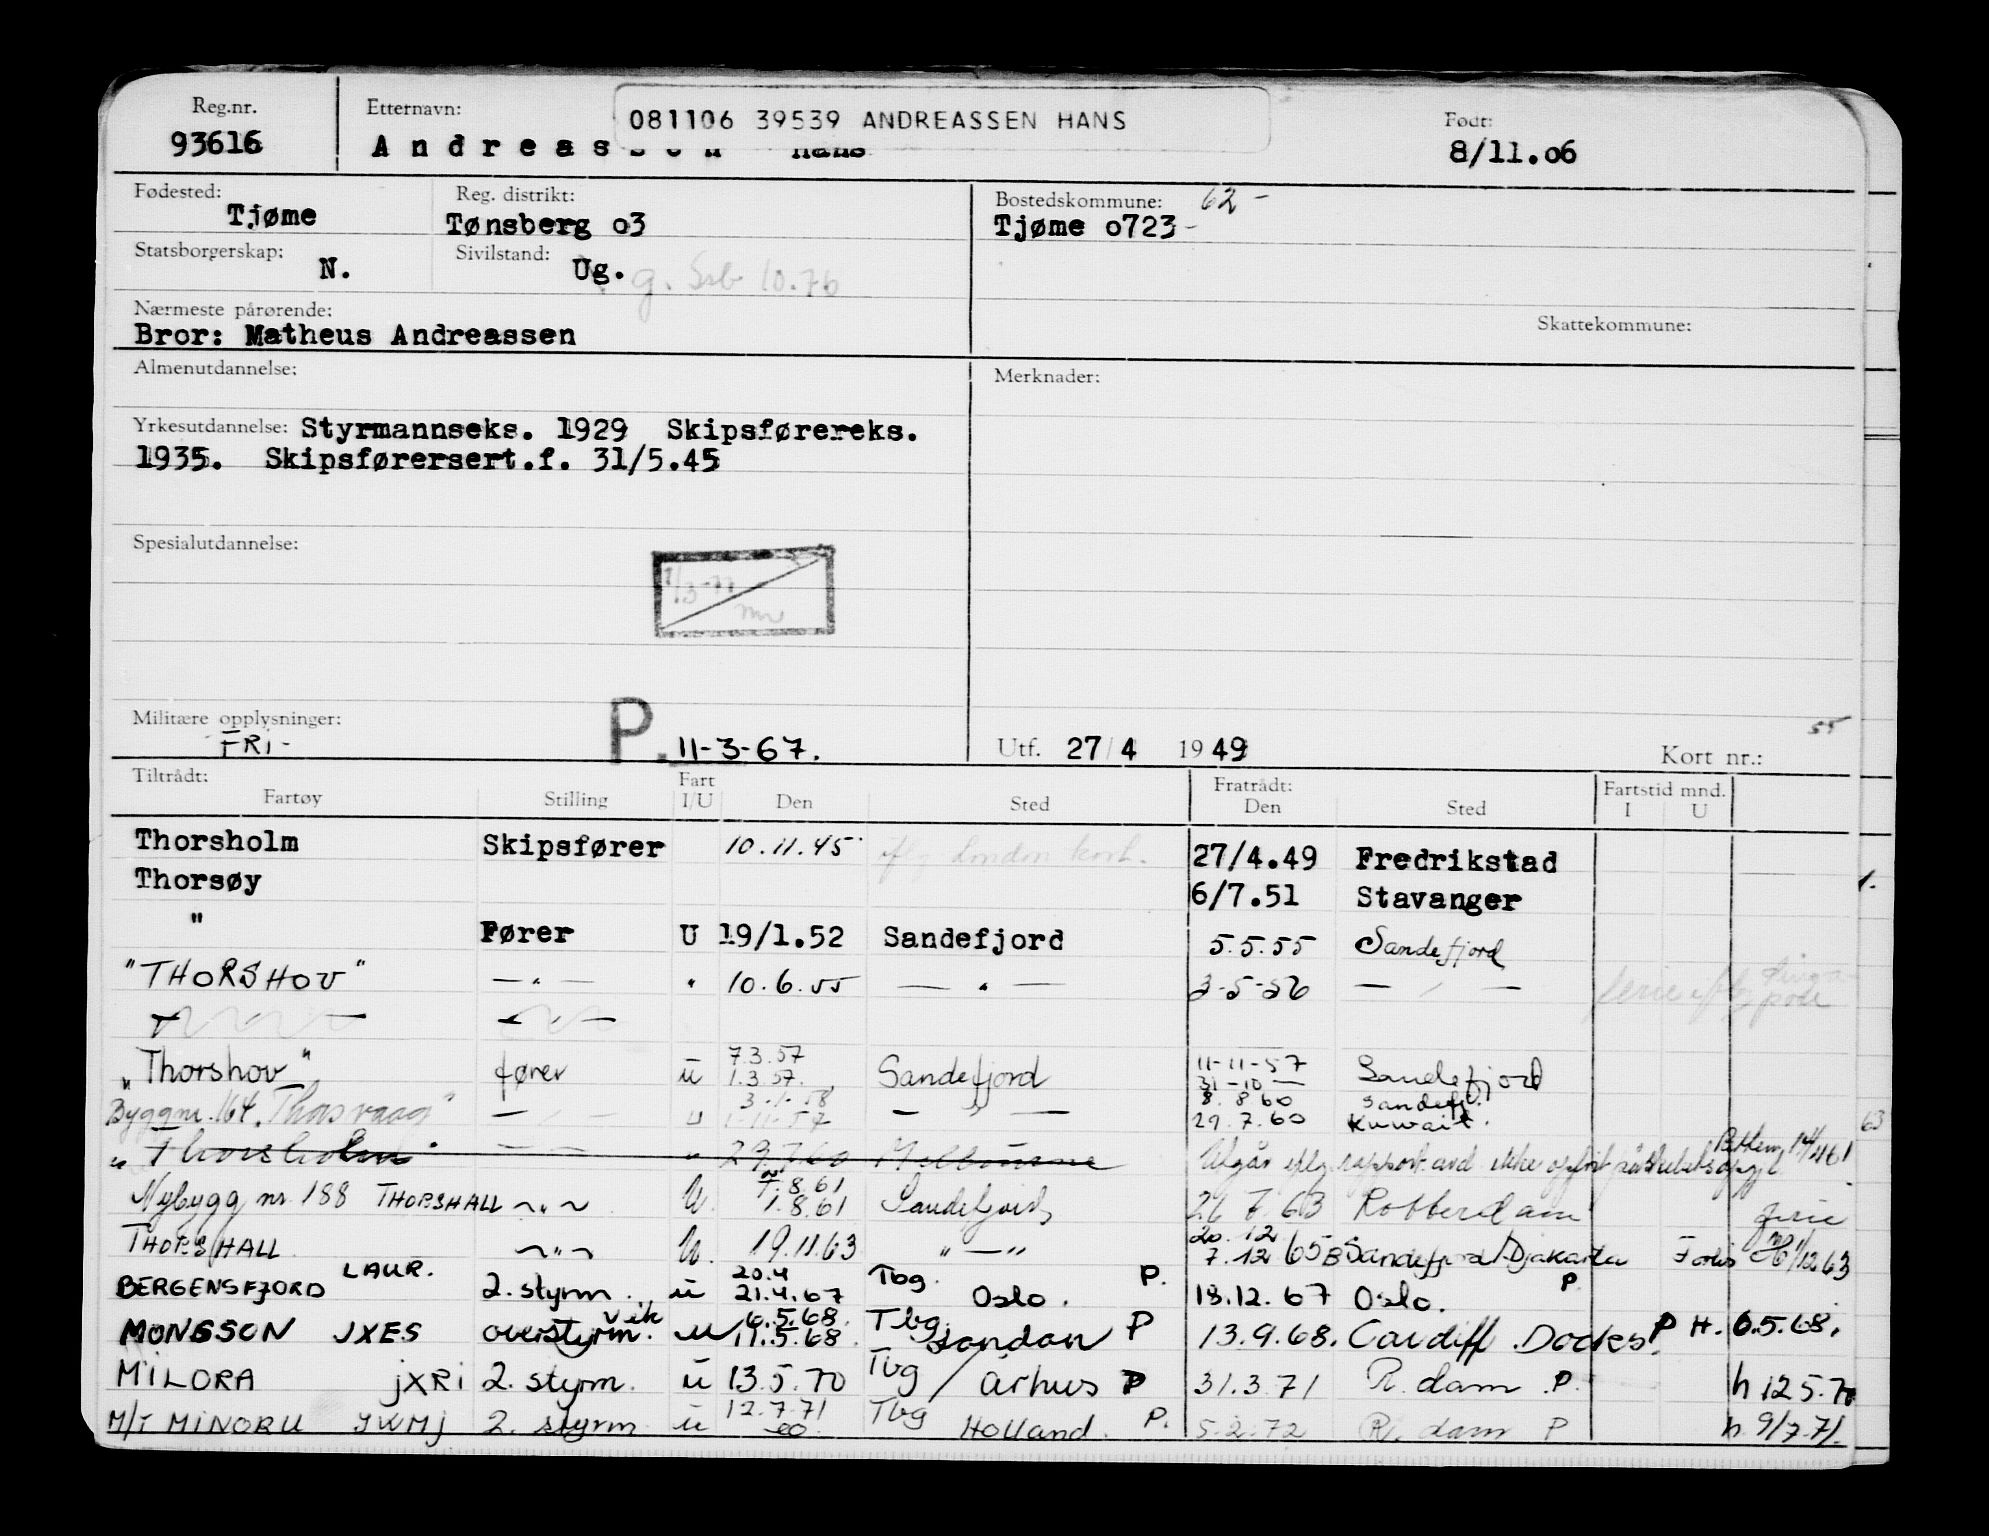 Reg.nr. Etternavn: 081106 39539 ANDREASSEN HANS Født:
93616 Andreassen Hans 8/11.06
Fødested: Reg. distrikt: Bostedskommune: 62 -
Tjøme Tønsberg o3 Tjøme o723 -
Statsborgerskap: Sivilstand:
N. Ug. g. Ssb 10.76
Nærmeste pårørende: Skattekommune:
Bror: Matheus Andreassen
Almenutdannelse: Merknader:
Yrkesutdannelse: Styrmannseks. 1929 Skipsførereks.
1935. Skipsførersert.f. 31/5.45
Spesialutdannelse:
Militære opplysninger: 55
FRI- P. 11-3-67. Utf. 27/4 1949 Kort nr.:
Tiltrådt: Fart Fratrådt: Fartstid mnd.
Fartøy Stilling I/U Den Sted Den Sted I U
Thorsholm Skipsfører 10.11.45 London kort. 27/4.49 Fredrikstad
Thorsøy 6/7.51 Stavanger 1.
" Fører U 19/1.52 Sandefjord 5.5.55 Sandefjord
"THORSHOV" — " — " 10.6.55 — " — 3-5-56 — " — ferie
7.3.57 11-11-57
"Thorshov" fører u 1.3.57. Sandefjord 31-10 — Sandefjord
3.1.58 8.8 60 Sandefj.
Byggnr. 164. "Thorsvaag" — " — u 1-11-57 — " — 29.7.60 Kuwait. 63
"Thorsholm" — — " 29.7.60 Melbourne Utgår rapport ikke 14/4 61
7.8.61
Nybygg nr. 188 THORSHALL ~ " ~ U. 1.8.61 Sandefjord 26 7 63 Rotterdam ferie
20.12
THORSHALL ~ " ~ U. 19.11.63 " — " 7.12 65 Sandefjord/Djakarta 12 63
LAUR. 20.4 Tbg. P. P
BERGENSFJORD 2. styrm. u 21.4.67 Oslo. 18.12.67 Oslo.
vik 6.5.68. Tbg.
MONGSON JXES overstyrm. u 11.5.68. London P 13.9.68. Cardiff Docks. P H. 6.5.68.
MILORA jXRi 2. styrm. u 13.5.70 Tbg / Århus P 31.3.71 R.dam P. h 12 5.70
M/T MINORU JWMj 2. styrm u 12.7.71 Tbg Holland. P. 5.2.72 R.dam P h 9/7.71.
20.